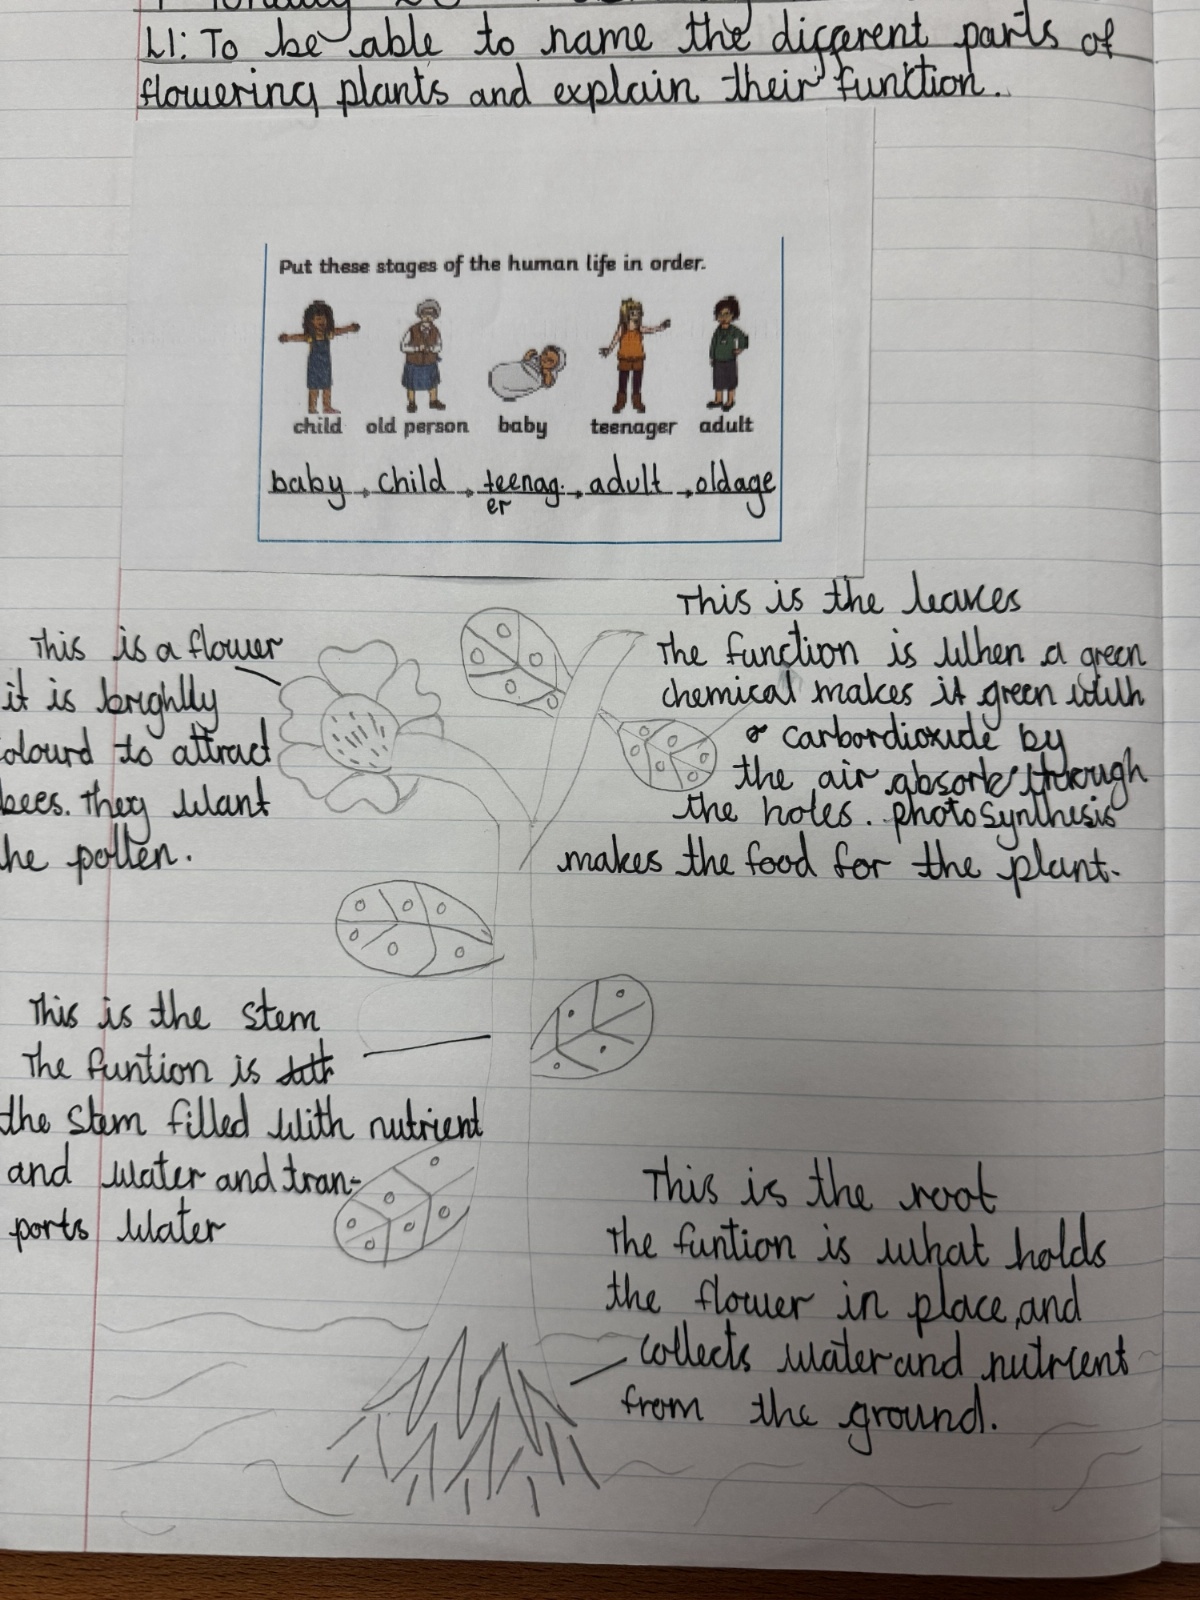 LI: To be able to name the different parts of
flowering plants and explain their function.
Put these stages of the human life in order.
child old person baby teenager adult
baby → child → teenag. → adult → oldage
er
This is a flower
it is brighlly
olourd to attract
bees. They want
he pollen.
This is the leaves
The function is when a green
chemical makes it green with
carbordioxide by
the air absorb through
the holes. photosynthesis
makes the food for the plant.
This is the stem
The funtion is
the stem filled with nutrient
and water and tran-
ports water
This is the root
The funtion is what holds
the flower in place, and
collects water and nutrient
from the ground.